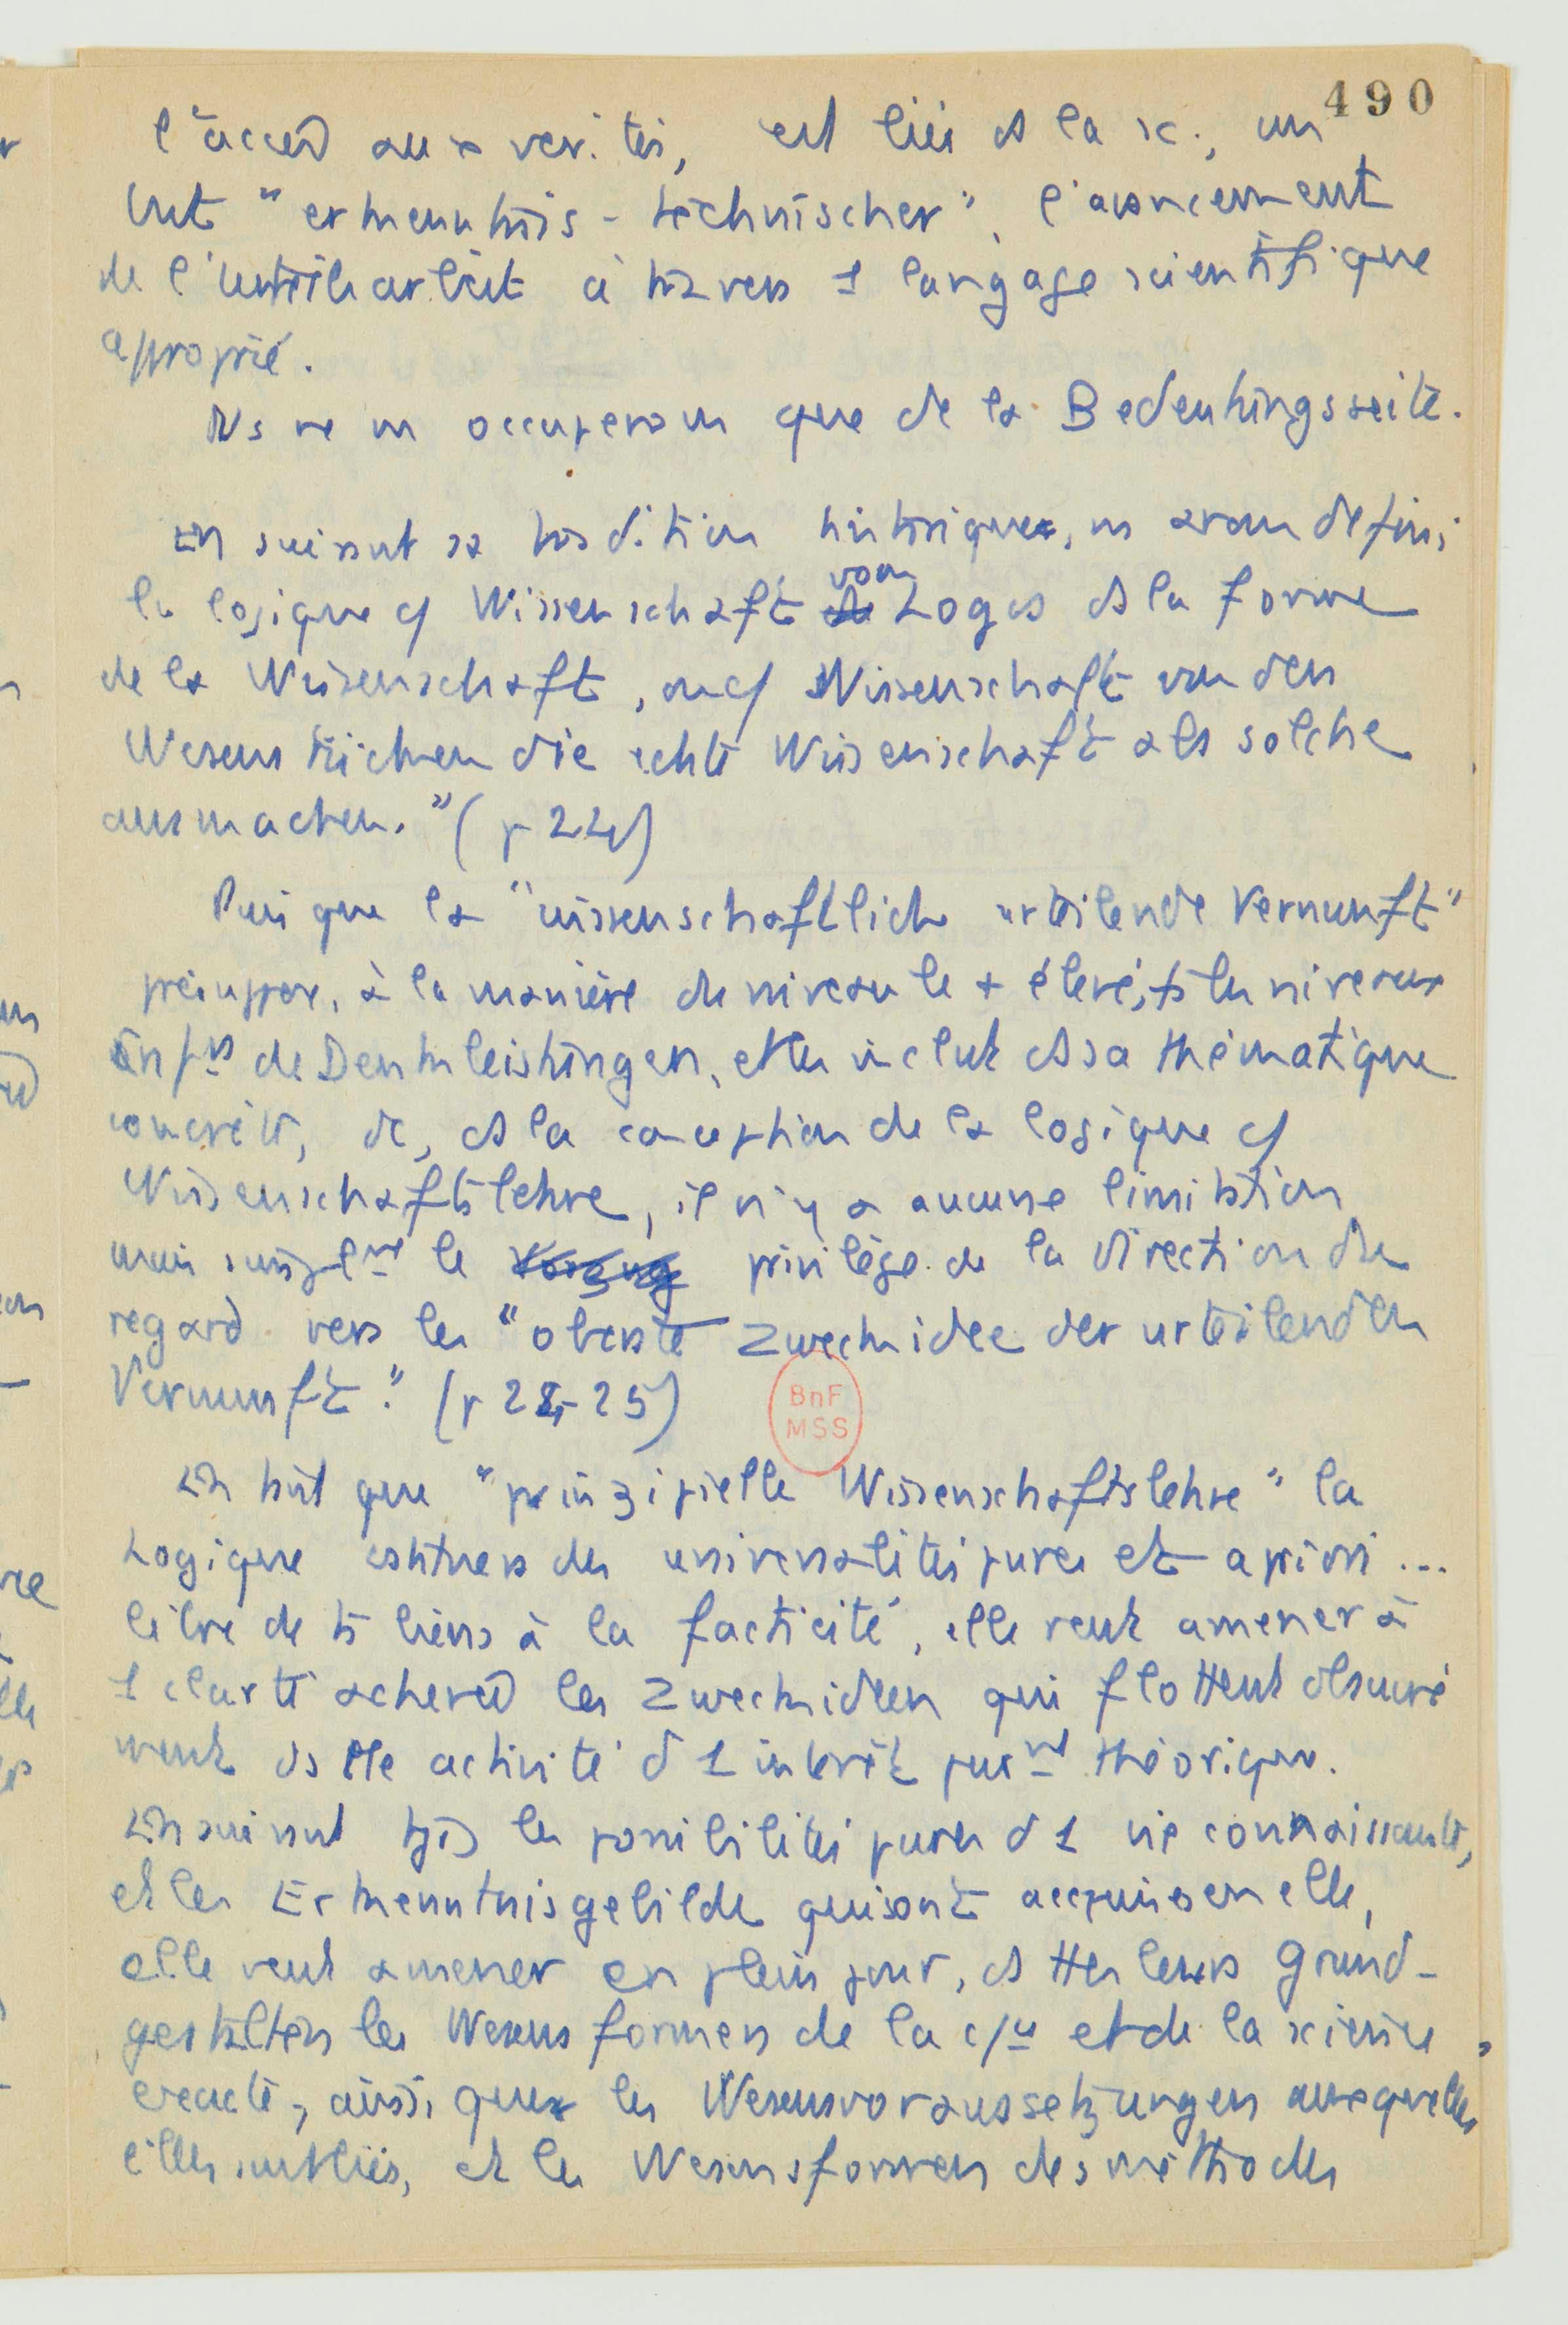 490
l'accès aux vérités, est lié ds la sc., un
but "erkenntnis-technischer", l'avancement
de l'Urteilsarbeit à travers 1 langage scientifique
approprié.
Ns ne ns occuperons que de la Bedeutungsseite.
En suivant sa tradition historique, ns avons défini
la logique c/ Wissenschaft vom Logos ds la forme
de la Wissenschaft, ou c/ Wissenschaft von den
Wesensstücken die echte Wissenschaft als solche
ausmachen." (p 24)
Puisque la "wissenschaftlich urteilende Vernunft"
présuppose, à la manière du niveau le + élevé, ts les niveaux
de Denkleistungen, et les inclut ds sa thématique
concrète, dc, ds la conception de la logique c/
Wissenschaftslehre, il n'y a aucune limitation
mais simplnt le Vorzug privilège de la direction du
regard vers les "oberste Zweckidee der urteilenden
Vernunft." (p 24-25)
En tant que "prinzipielle Wissenschaftslehre" la
Logique des universalités pures et a priori ...
libre de ts liens à la facticité, elle veut amener à
1 clarté achevée les Zweckideen qui flottent obscuré
ment ds tte activité d 1 intérêt purnt théorique.
En suivant tjs les possibilités pures d 1 vie connaissante,
et les Erkenntnisgebilde qui sont acquises en elle,
elle veut amener en plein jour, ds ttes leurs Grund-
gestalten les Wesensformen de la et de la science
exacte, ainsi que les Wesensvoraussetzungen auxquelles
elles sont liées, et les Wesensformen des méthodes
BnF
MSS